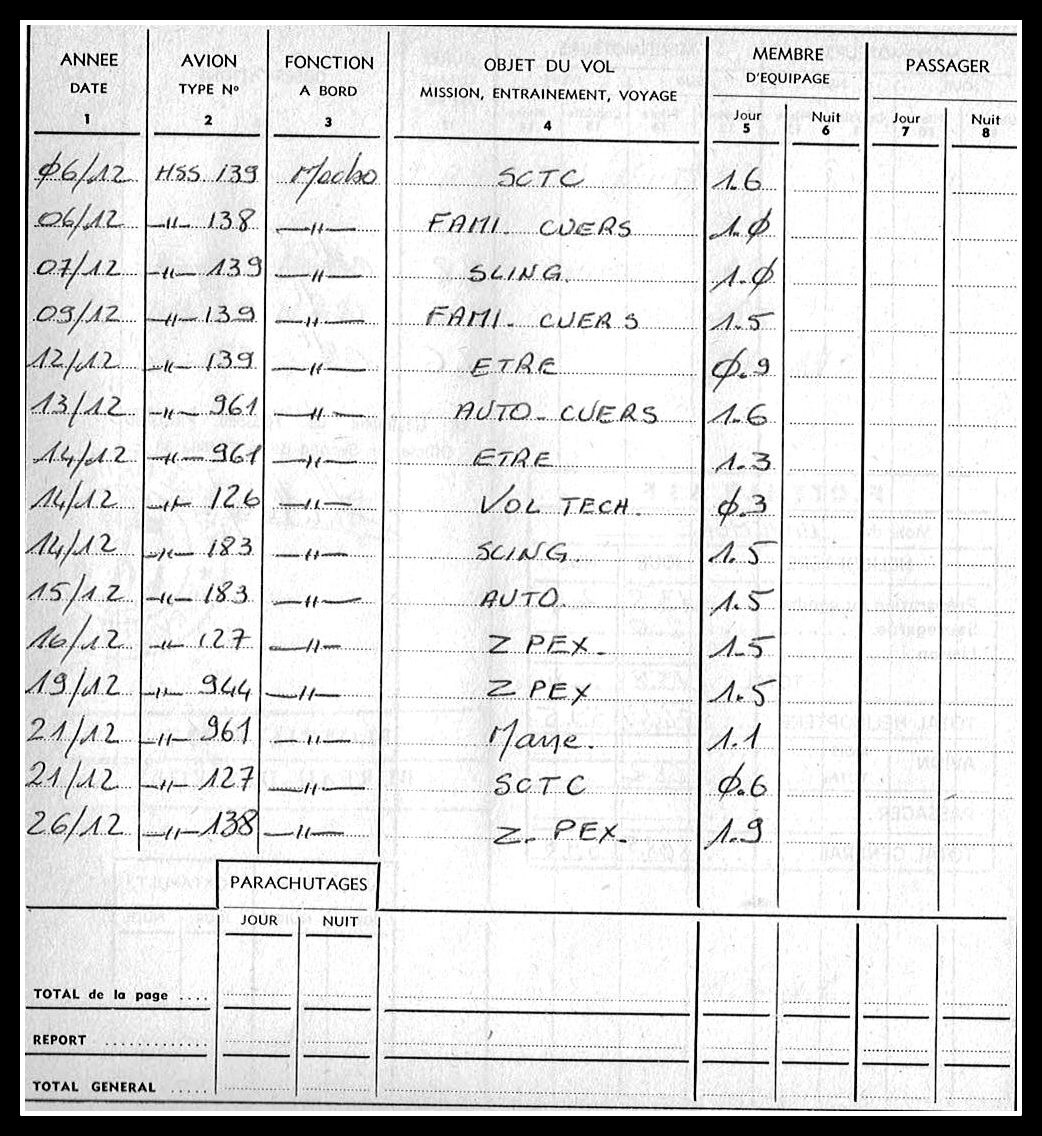 ANNEE AVION FONCTION OBJET DU VOL MEMBRE PASSAGER
DATE TYPE Nº A BORD MISSION, ENTRAINEMENT, VOYAGE D'EQUIPAGE
Jour Nuit Jour Nuit
1 2 3 4 5 6 7 8
Ø6/12 HSS 139 SCTC 1.6
06/12 —"— 138 —"— FAMI. CUERS 1.Ø
07/12 —"— 139 —"— SLING. 1.Ø
09/12 —"— 139 —"— FAMI. CUERS 1.5
12/12 —"— 139 —"— ETRE Ø.9
13/12 —"— 961 —"— AUTO - CUERS 1.6
14/12 —"— 961 —"— ETRE 1.3
14/12 —"— 126 —"— VOL TECH. Ø.3
14/12 —"— 183 —"— SLING 1.5
15/12 —"— 183 —"— AUTO. 1.5
16/12 —"— 127 —"— Z PEX - 1.5
19/12 —"— 944 —"— Z PEX 1.5
21/12 —"— 961 —"— 1.1
21/12 —"— 127 —"— SCTC Ø.6
26/12 —"— 138 —"— Z. PEX. 1.9
PARACHUTAGES
JOUR NUIT
TOTAL de la page ....
REPORT ............
TOTAL GENERAL .....